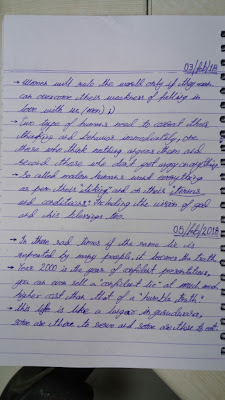 03/feb/18
→ Women will rule the world only if they
can overcome their weakness of falling in
love with us (men) ;)
→ Two type of humans need to correct their
thinking and behavior immediately, one
those who that nothing angers them and
second those who don't get angry on anything.
→ So called modern humans want everything
as per their "choice" and on their "terms
and conditions". Including the vision of god
and his blessings too.
05/feb/2018
→ In these sad times if the same lie is
repeated by many people, it becomes the truth.
→ Year 2000 is the year of confident presentations,
you can even sell a "confident lie" at much more
higher cost than that of a "humble truth".
→ this life is like a langar in gurudwara,
some are there to serve and some are there to eat.